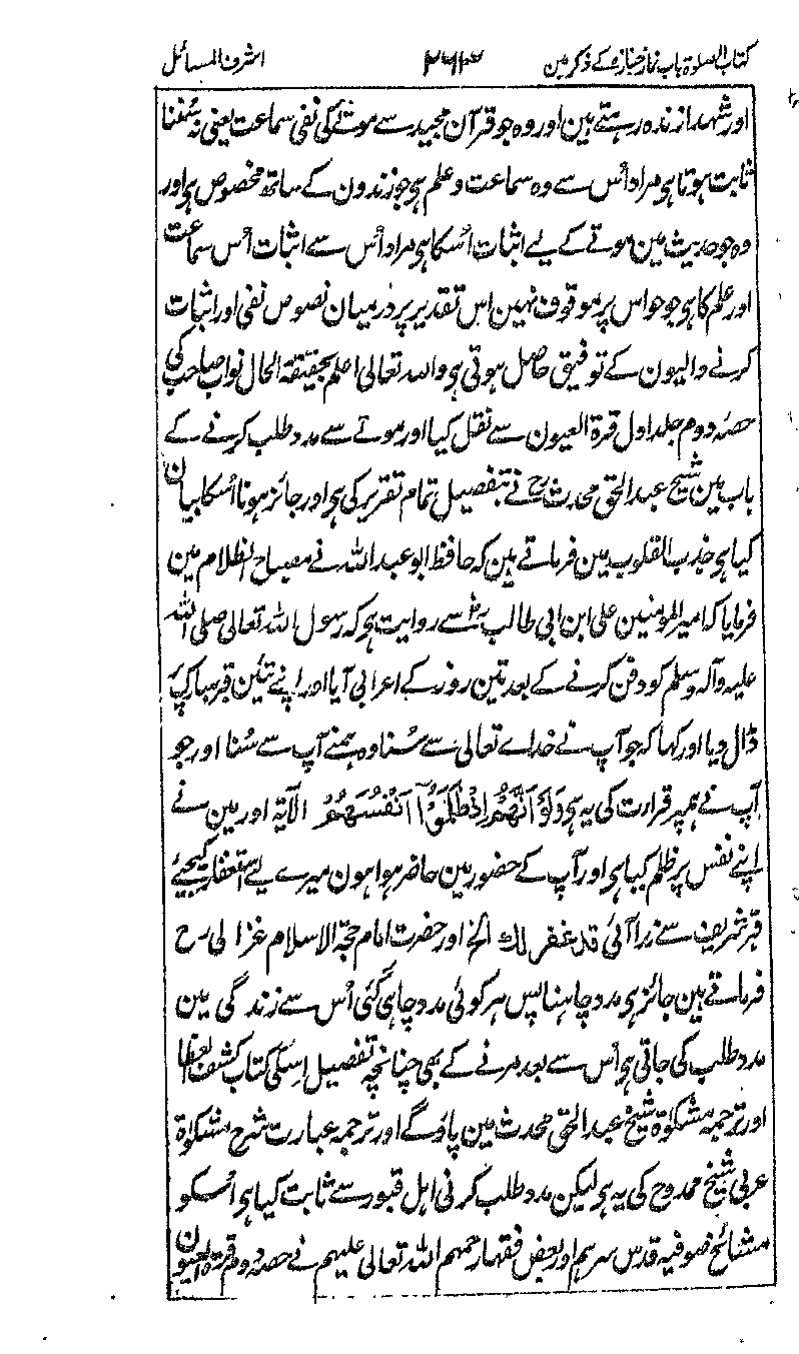 کتاب الصلوۃ باب نماز جنازہ کے ذکر مین ۲۶۳ اشرف المسائل
اور شہدا زندہ رہتے ہین اور وہ جو قرآن مجید سے موتے کی نفی سماعت یعنی نہ سُننا
ثابت ہوتا ہی مراد اُس سے وہ سماعت و علم ہی جو زندون کے ساتھ مخصوص ہی اور
وہ جو حدیث مین موتے کے لیے اثبات اُسکا ہی مراد اُس سے اثبات اُس سماعت
اور علم کا ہی جو حواس پر موقوف نہین اس تقدیر پر درمیان نصوص نفی اور اثبات
کرنے والیون کے توفیق حاصل ہوتی ہی واللہ تعالی اعلم بحقیقۃ الحال نواب صاحب کی
حصہ دوم جلد اول قرۃ العیون سے نقل کیا اور موتے سے مدد طلب کرنے کے
باب مین شیخ عبد الحق محدث رح نے بتفصیل تمام تقریر کی ہی اور جائز ہونا اُسکا بیان
کیا ہی جذب القلوب مین فرماتے ہین کہ حافظ ابو عبد اللہ نے مصباح الظلام مین
فرمایا کہ امیر المومنین علی ابن ابی طالب رض سے روایت ہی کہ رسول اللہ تعالی صلی اللہ
علیہ و آلہ وسلم کو دفن کرنے کے بعد تین روز کے اعرابی آیا اور اپنے تئین قبر مبارک پر
ڈال دیا اور کہا کہ جو آپ نے خداے تعالی سے سُنا وہ ہمنے آپ سے سُنا اور جو
آپ نے ہمپر قرارت کی یہ ہی وَلَوْ اَنَّهُمْ اِذْ ظَّلَمُوْٓا اَنْفُسَهُمْ الآیۃ اور مین نے
اپنے نفس پر ظلم کیا ہی اور آپ کے حضور مین حاضر ہوا ہون میرے لیے استغفار کیجیے
قبر شریف سے ندا آئی قد غفر لك الخ اور حضرت امام حجۃ الاسلام غزالی رح
فرماتے ہین جائز ہی مدد چاہنا پس ہر کوئی مدد چاہی گئی اُس سے زندگی مین
مدد طلب کی جاتی ہی اُس سے بعد مرنے کے بھی چنانچہ تفصیل اسکی کتاب کشف الغطا
اور ترجمہ مشکوۃ شیخ عبد الحق محدث مین پاؤگے اور ترجمہ عبارت شرح مشکوۃ
عربی شیخ ممدوح کی یہ ہی لیکن مدد طلب کرنی اہل قبور سے ثابت کیا ہی اُسکو
مشائخ صوفیہ قدس سرہم اور بعض فقہا رحمہم اللہ تعالی علیہم نے حصہ دوم قرۃ العیون